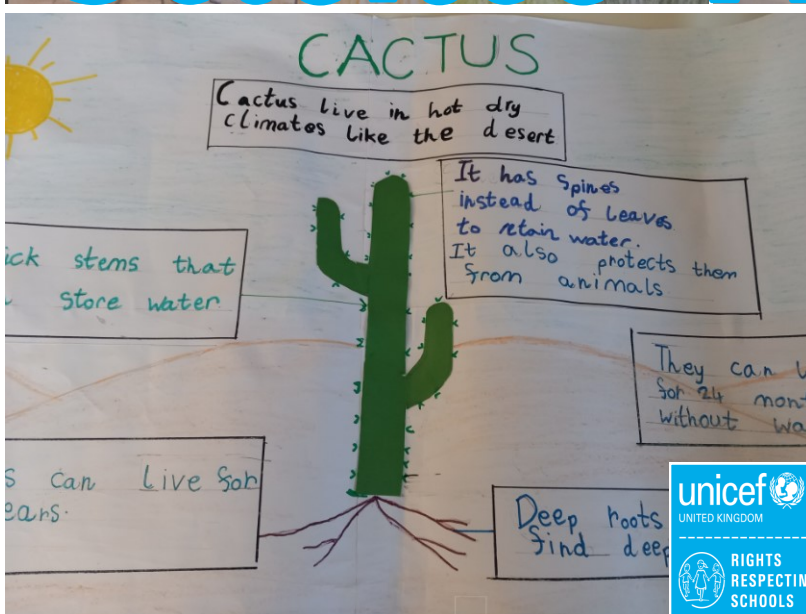 CACTUS
Cactus live in hot dry
climates like the desert
It has spines
instead of leaves
to retain water.
It also protects them
from animals
ick stems that
store water
They can
for 24 mont
without wa
s can live for
ears.
Deep roots
find deep
unicef
UNITED KINGDOM
RIGHTS
RESPECTIN
SCHOOLS